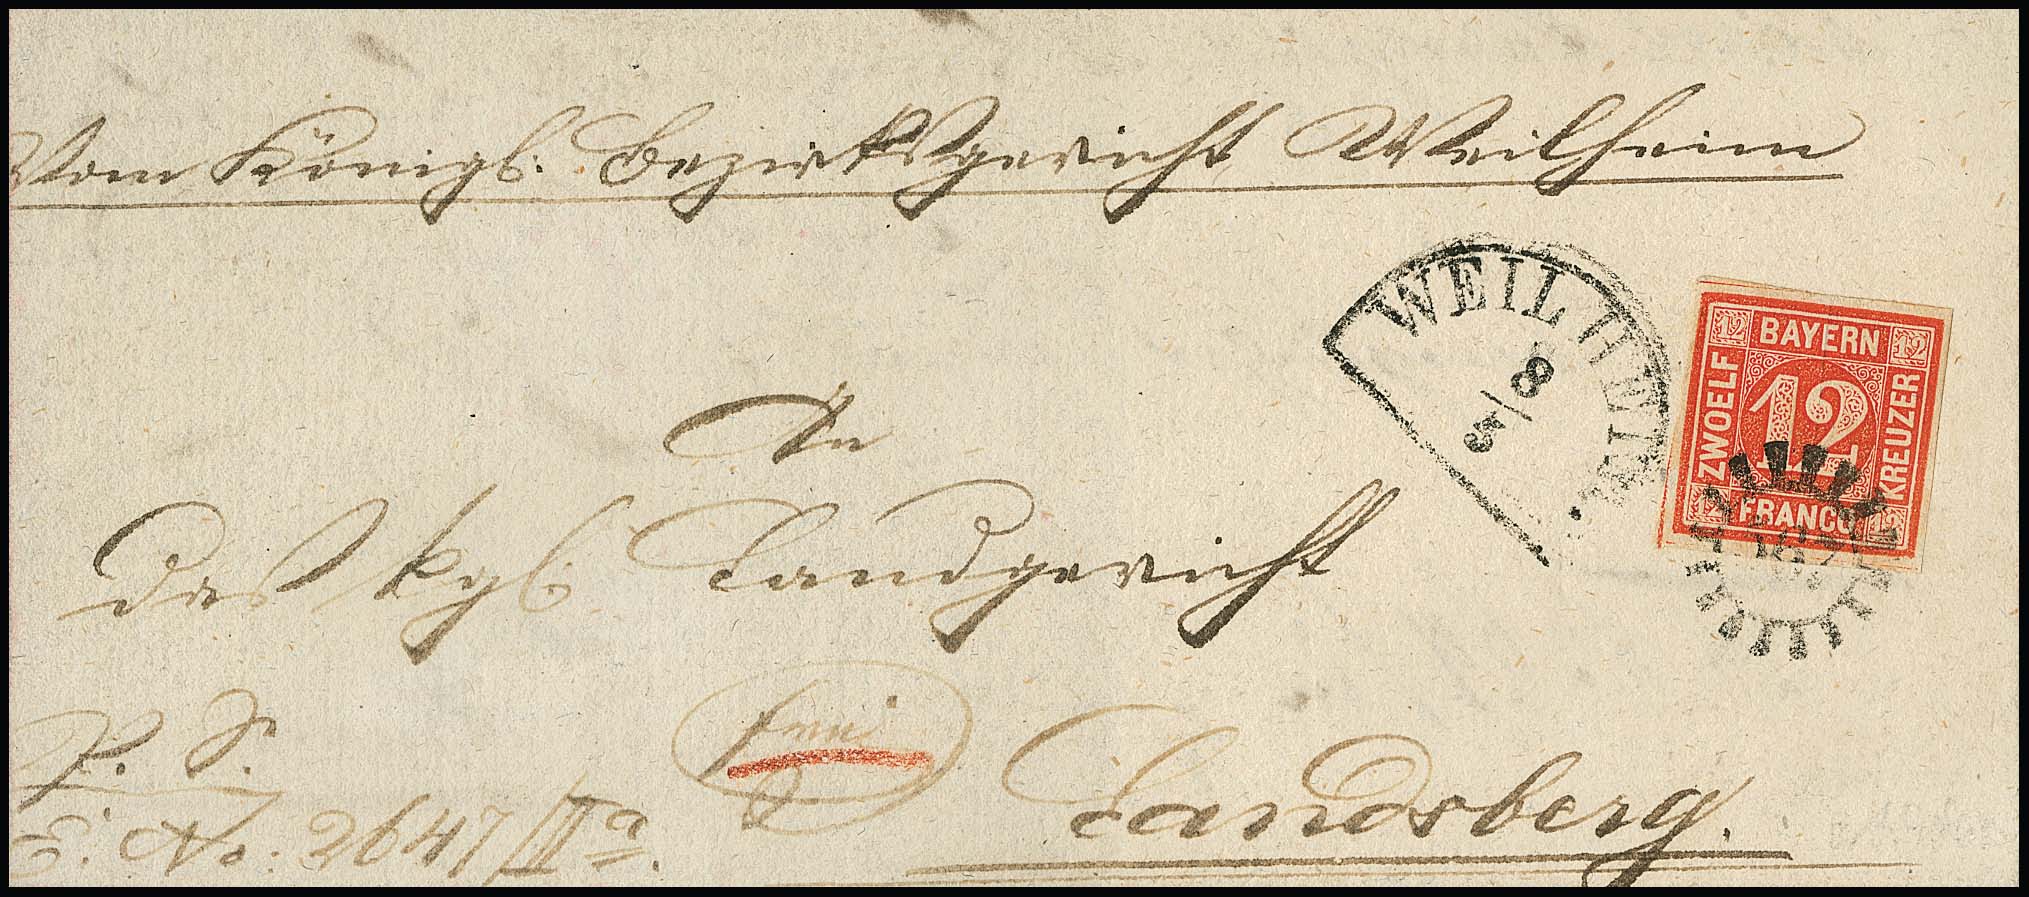 Vom Königl. Bezirksgericht Weilheim
WEILHEIM.
8
5
12 BAYERN 12
ZWOELF 12 KREUZER
12 FRANCO 12
An
das kgl. Landgericht
P. S.
frei
Landsberg.
E. No. 2647/IIa.